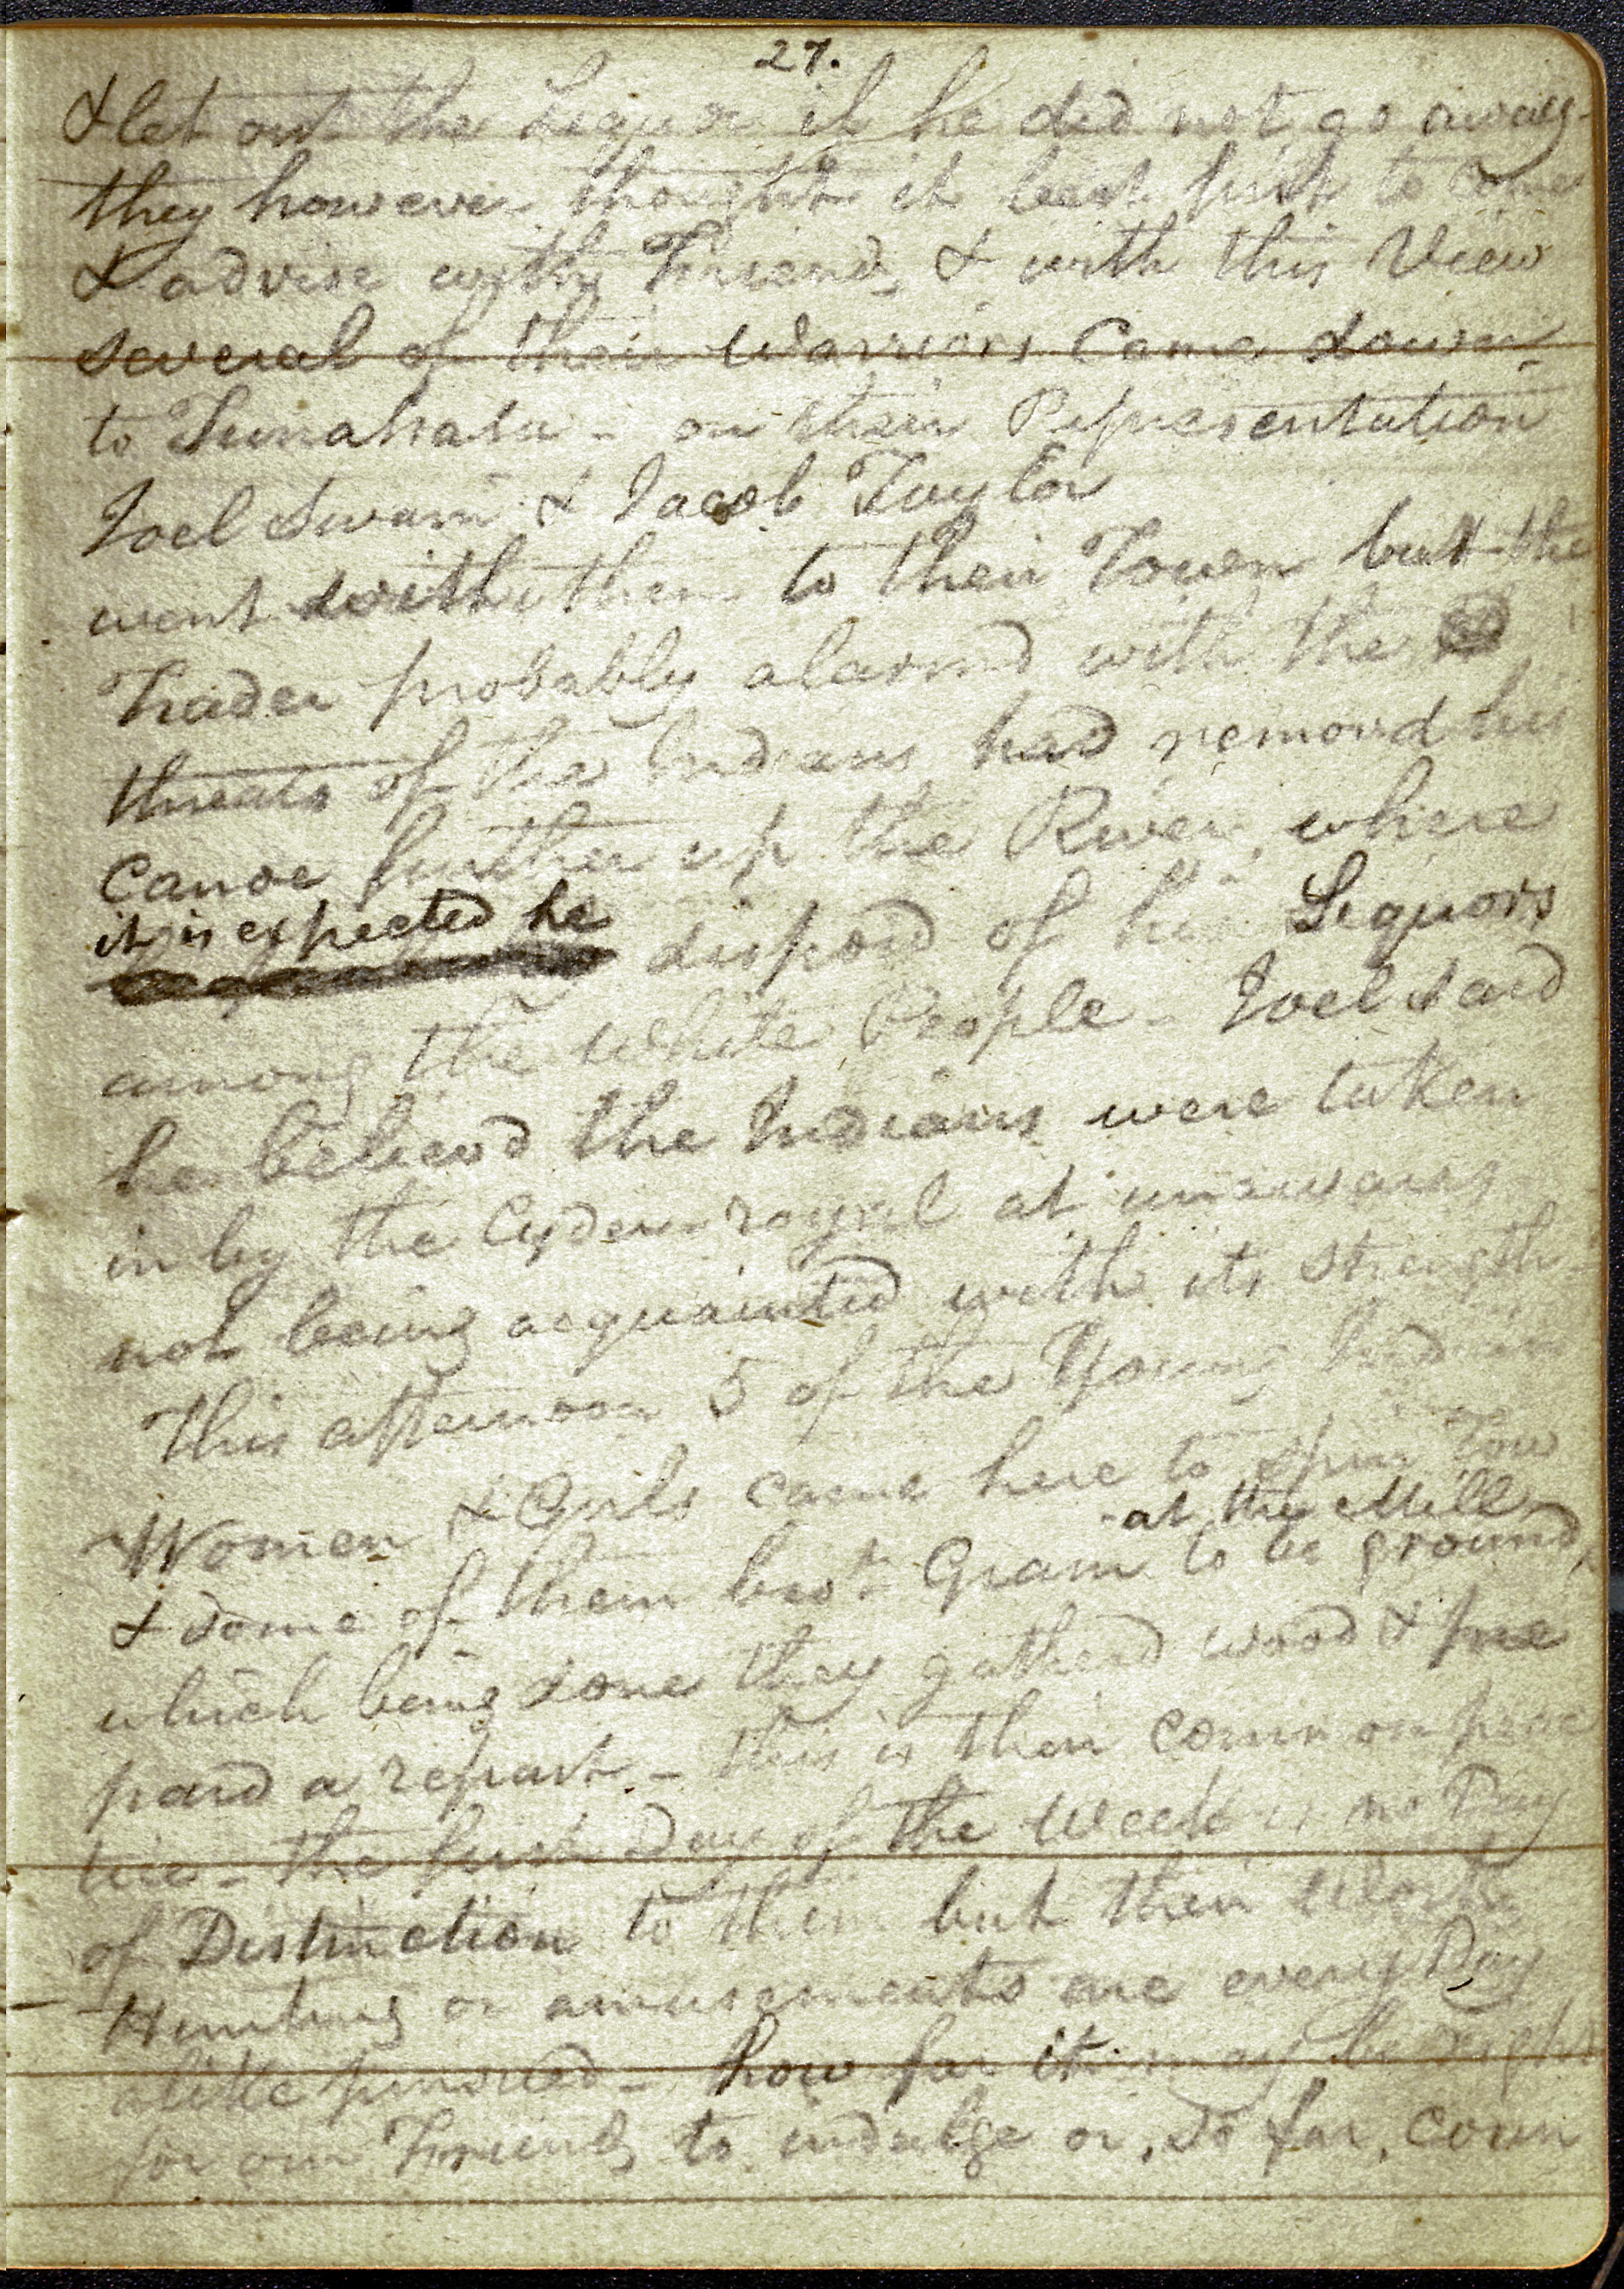 27.
& let out the Liquor if he did not go away-
they however thought it best first to come
& advise with Friends & with this View
several of their Warriors Came down-
to Tunahsata - on their Representation
Joel Swain & Jacob Taylor
went with them to their Town but the
Trader probably alarmd with the
threats of the Indians had removd his
Canoe further up the River, where
it is expected he
disposd of his Liquors
among the White People - Joel said
he believd the Indians were taken
in by the Cyder-royal at unawares
not being acquainted with its strength
This afternoon 5 of the Young Indian
Women & Girls came here to spin Tow
-at the Mill
& some of them bro't Grain to be ground,
which being done they gatherd wood & pre
pard a repast - this is their common prac
tice - the first Day of the Week is no Day
of Distinction to them but their Work
Hunting or amusements are every Day
alike pursued - how far it may be right
for our Friends to indulge or, so far, coun